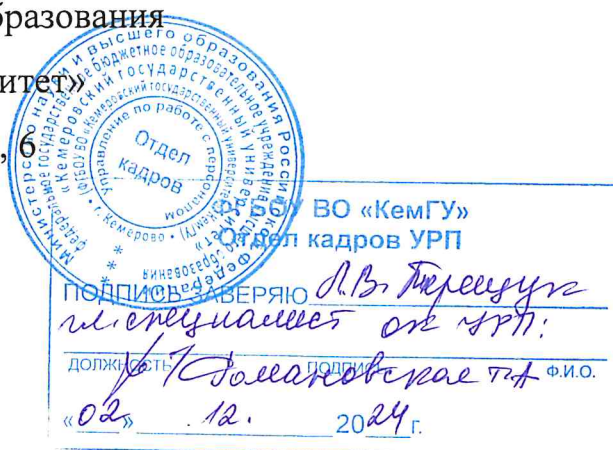 бразования
итет»
, 6
Министерство науки и высшего образования Российской Федерации
федеральное государственное бюджетное образовательное учреждение высшего образования
«Кемеровский государственный университет»
(ФГБОУ ВО «Кемеровский государственный университет», КемГУ)
Управление по работе с персоналом
* г. Кемерово *
Отдел
кадров
* * *
ФГБОУ ВО «КемГУ»
Отдел кадров УРП
ПОДПИСЬ ЗАВЕРЯЮ Л.В. Терещук
гл. специалист ОК УРП:
ДОЛЖНОСТЬ ПОДПИСЬ Ф.И.О.
Романовская Т.А
«02» 12. 2024 г.